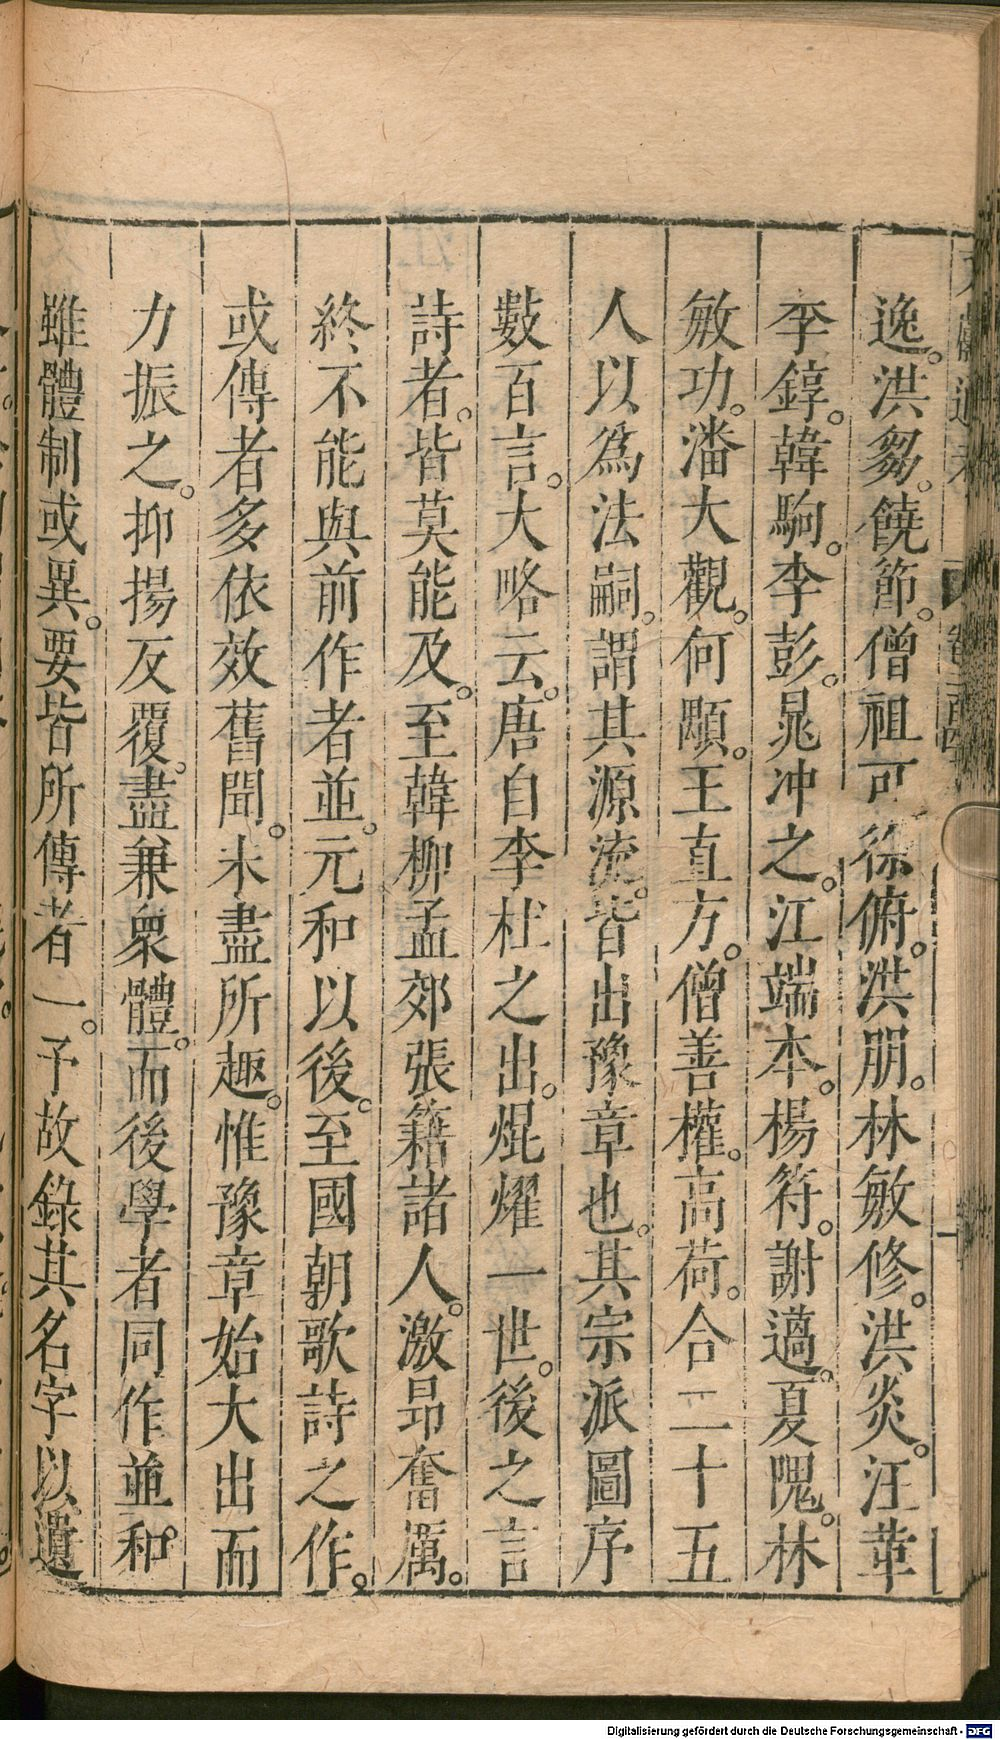 逸。洪芻。饒節。僧祖可。徐俯。洪朋。林敏修。洪炎。汪革
李錞。韓駒。李彭。晁冲之。江端本。楊符。謝薖。夏隗。林
敏功。潘大觀。何顒。王直方。僧善權。高荷。合二十五
人以爲法嗣。謂其源流。皆出豫章也。其宗派圖序
數百言。大略云。唐自李杜之出。焜燿一世。後之言
詩者。皆莫能及。至韓柳孟郊張籍諸人。激昂奮厲。
終不能與前作者並。元和以後。至國朝歌詩之作。
或傳者多依效舊聞。未盡所趣。惟豫章始大出而
力振之。抑揚反覆。盡兼衆體。而後學者同作並和。
雖體制或異。要皆所傳者一。予故錄其名字以遺
Digitalisierung gefördert durch die Deutsche Forschungsgemeinschaft - DFG